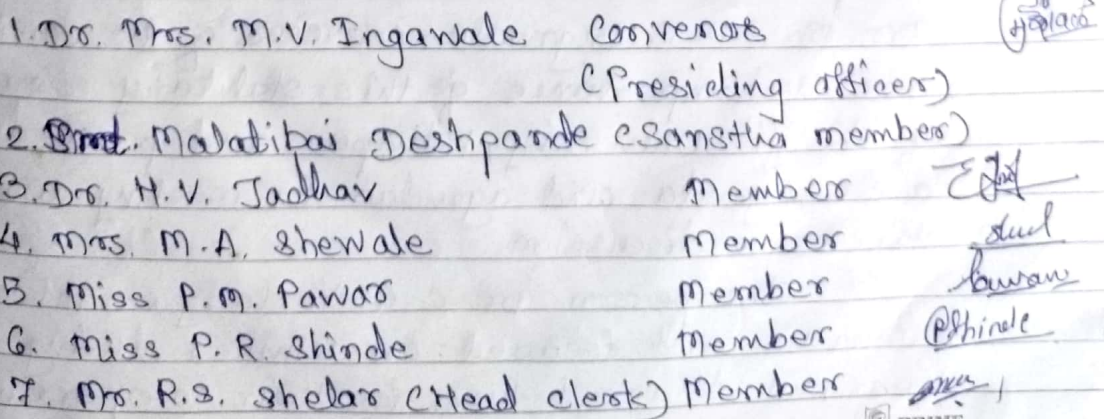 1. Dr. Mrs. M.V. Ingawale Convenor
(Presiding officer)
2. Smt. Malatibai Deshpande (Sanstha member)
3. Dr. H.V. Jadhav Member
4. Mrs. M.A. Shewale Member
5. Miss P.M. Pawar Member Pawar
6. Miss P.R. Shinde Member PShinde
7. Mr. R.S. Shelar (Head clerk) Member